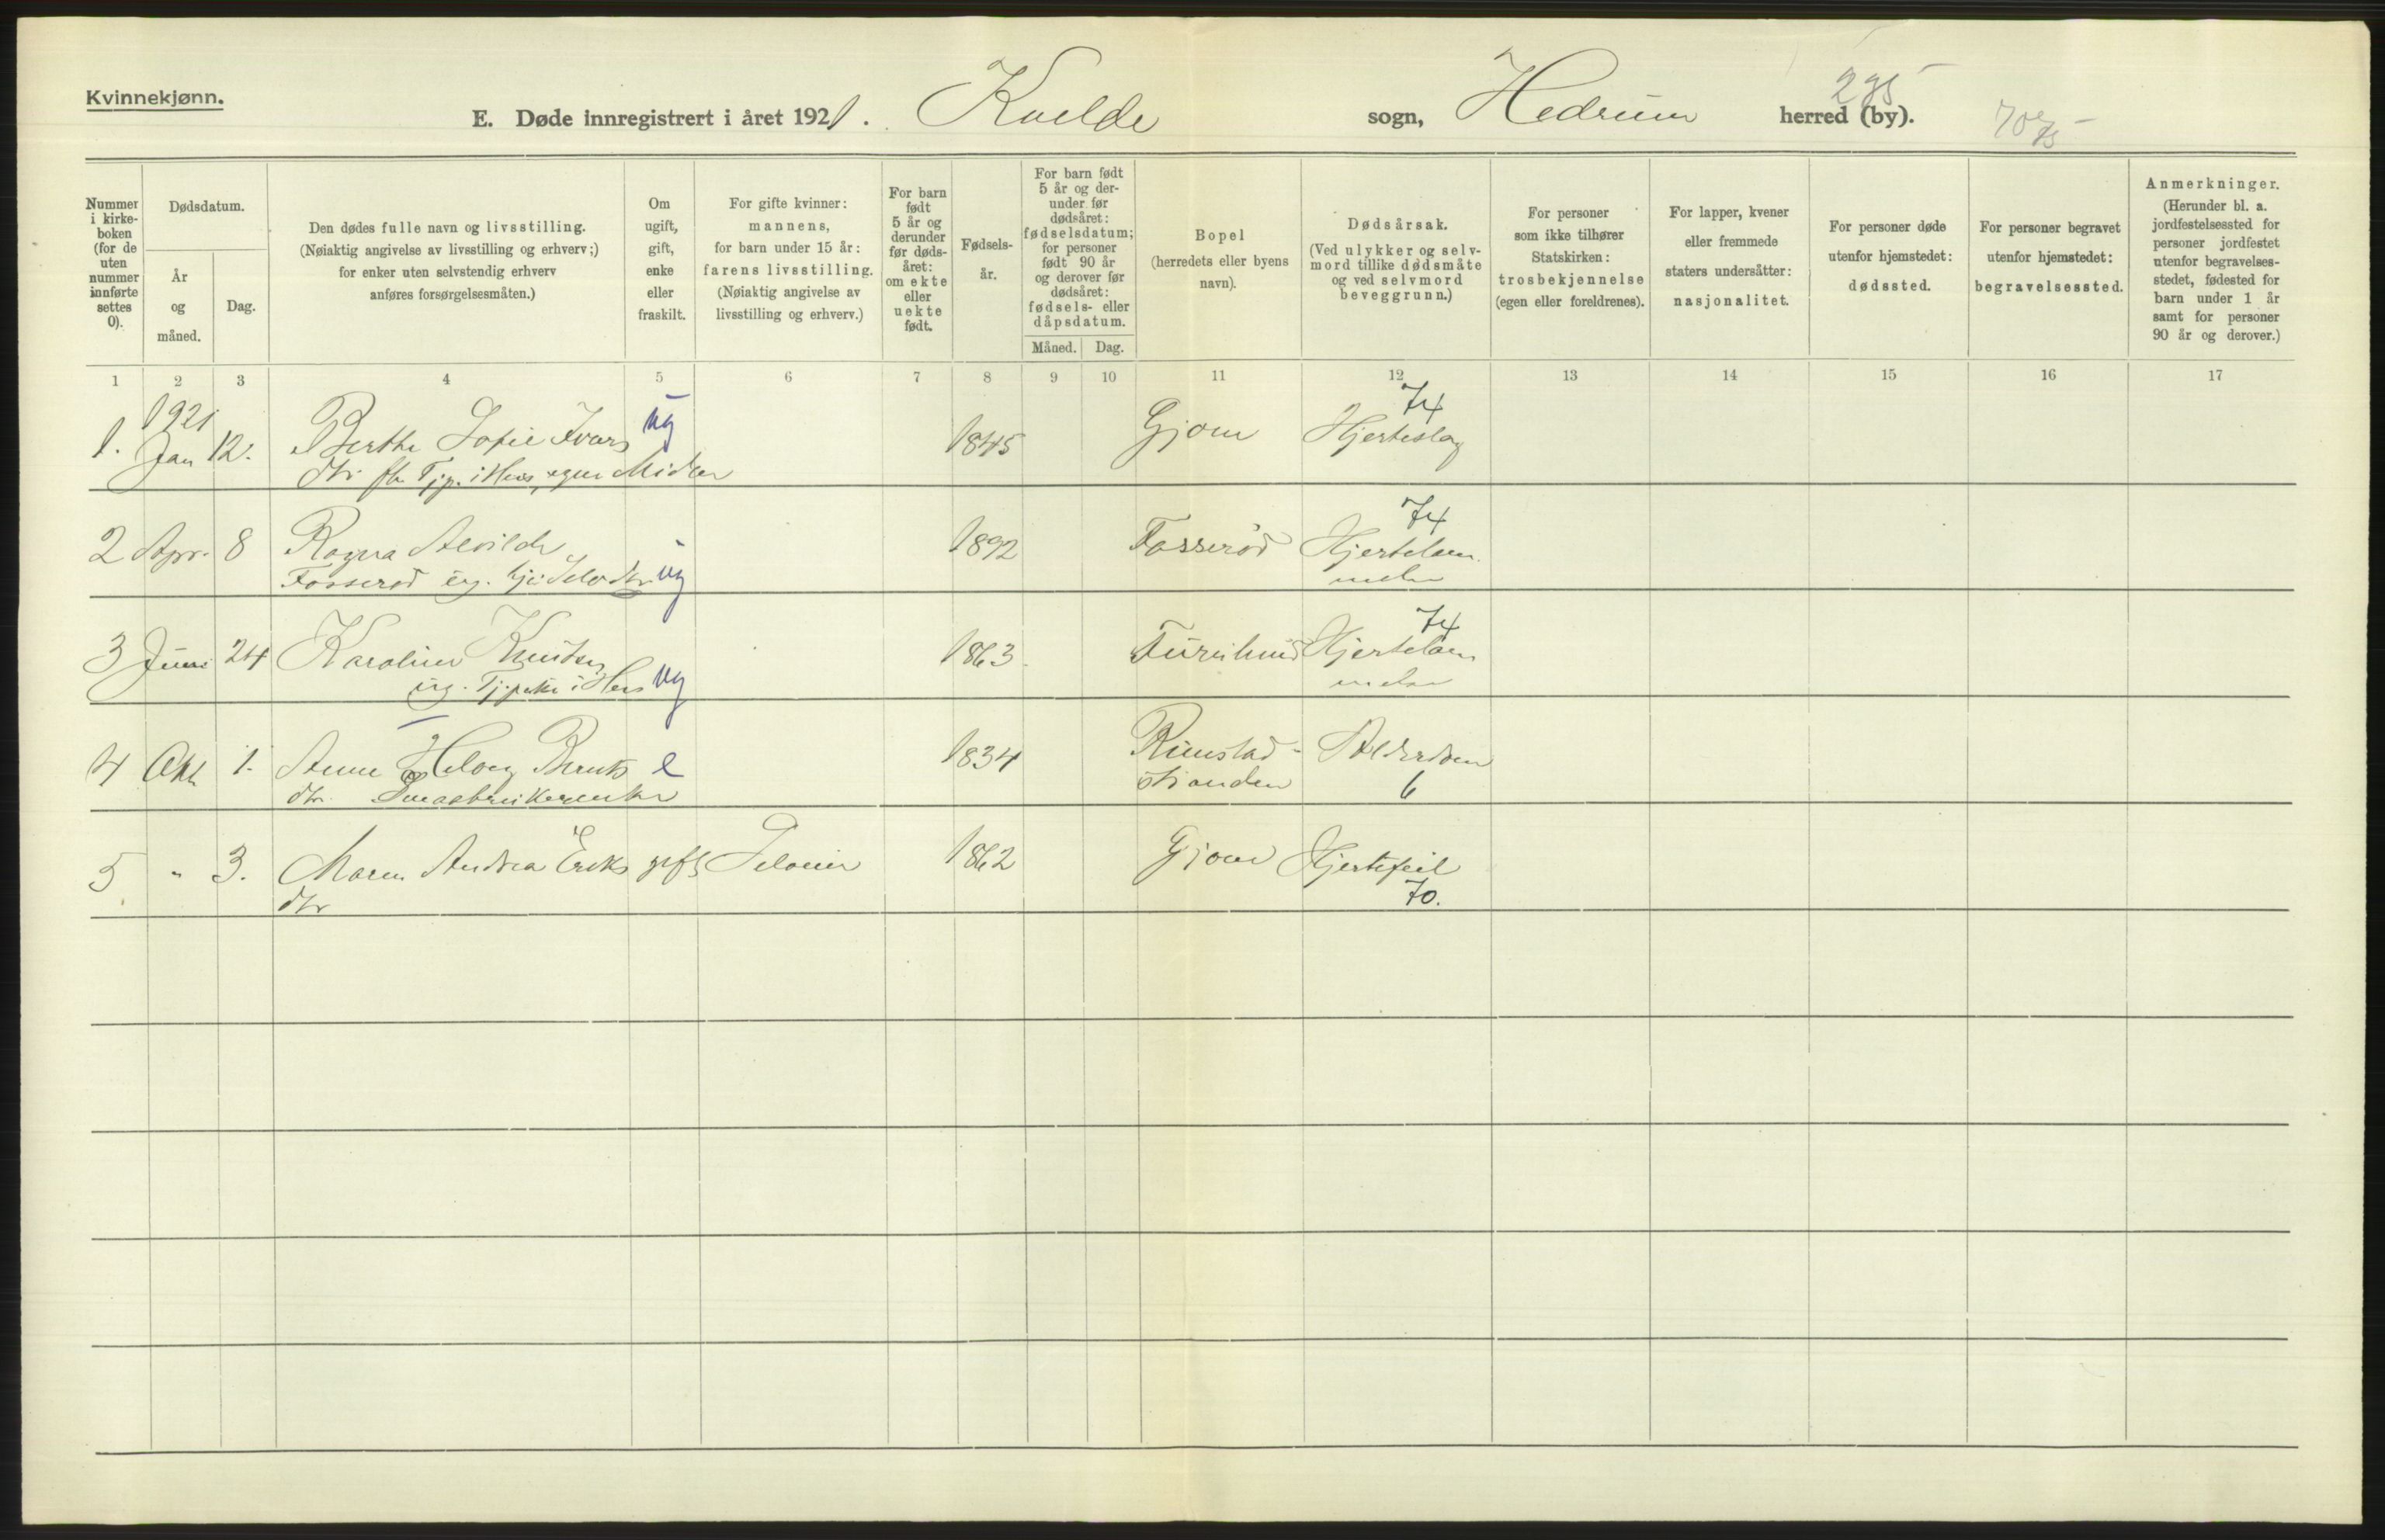 Kvinnekjønn.
E. Døde innregistrert i året 1921. Kvelde sogn, Hedrum herred (by).
235
Nummer i kirkeboken (for de uten nummer innførte settes 0).
Dødsdatum.
År og måned.
Dag.
Den dødes fulle navn og livsstilling.
(Nøiaktig angivelse av livsstilling og erhverv;)
for enker uten selvstendig erhverv
anføres forsørgelsesmåten.)
Om ugift, gift, enke eller fraskilt.
For gifte kvinner:
mannens,
for barn under 15 år:
farens livsstilling.
(Nøiaktig angivelse av
livsstilling og erhverv.)
For barn født 5 år og derunder før dødsåret: om ekte eller uekte født.
Fødselsår.
For barn født 5 år og derunder før dødsåret: fødselsdatum; for personer født 90 år og derover før dødsåret: fødsels- eller dåpsdatum.
Måned.
Dag.
Bopel
(herredets eller byens
navn).
Dødsårsak.
(Ved ulykker og selvmord tillike dødsmåte og ved selvmord beveggrunn.)
For personer
som ikke tilhører
Statskirken:
trosbekjennelse
(egen eller foreldrenes).
For lapper, kvener
eller fremmede
staters undersåtter:
nasjonalitet.
For personer døde
utenfor hjemstedet:
dødssted.
For personer begravet
utenfor hjemstedet:
begravelsessted.
Anmerkninger.
(Herunder bl. a. jordfestelsessted for personer jordfestet utenfor begravelsesstedet, fødested for barn under 1 år samt for personer 90 år og derover.)
1 2 3 4 5 6 7 8 9 10 11 12 13 14 15 16 17
1921 74
1. Jan 12. Berthe Sofie Ivars ug 1845 Gjone Hjerteslag
dtr fhv Tjp. i Hus, egne Midler
74
2 Apr. 8 Ragna Alvilde 1892 Fosserød Hjertelam
Fosserød ug. Gj. Selv dtr. ug melse
74
3 Juni 24 Karoline Knutsen 1863 Hjertelam
ug. Tj.pike i Hus ug melse
4 Okt 1. Anne Helvig Bernts e 1834 Rimstad- Alderdom
dtr. Småbrukerenke stranden 6
5 " 3. Maren Andrea Eriks gift 1862 Gjone Hjertefeil
dtr 70.